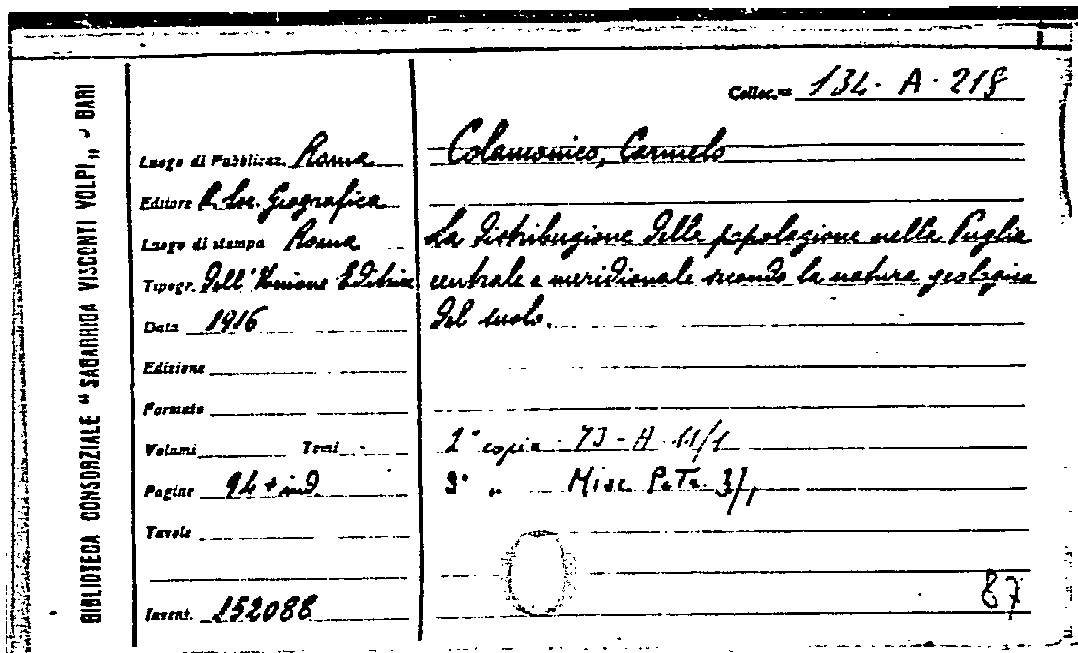 BIBLIOTECA CONSORZIALE "SAGARRIGA VISCONTI VOLPI„ - BARI
Colloc.ne 134-A-218
Luogo di Pubblicaz. Roma
Colamonico, Carmelo
Editore R. Soc. Geografica
Luogo di stampa Roma
La distribuzione della popolazione nella Puglia
Tipogr. Dell'Unione Editrice
centrale e meridionale secondo la natura geologica
Data 1916
del suolo.
Edizione
Formato
Volumi Tomi
2ª copia 73-A-11/1
Pagine 94 + ind.
3ª „ Misc. 3/1
Tavole
87
Invent. 152088